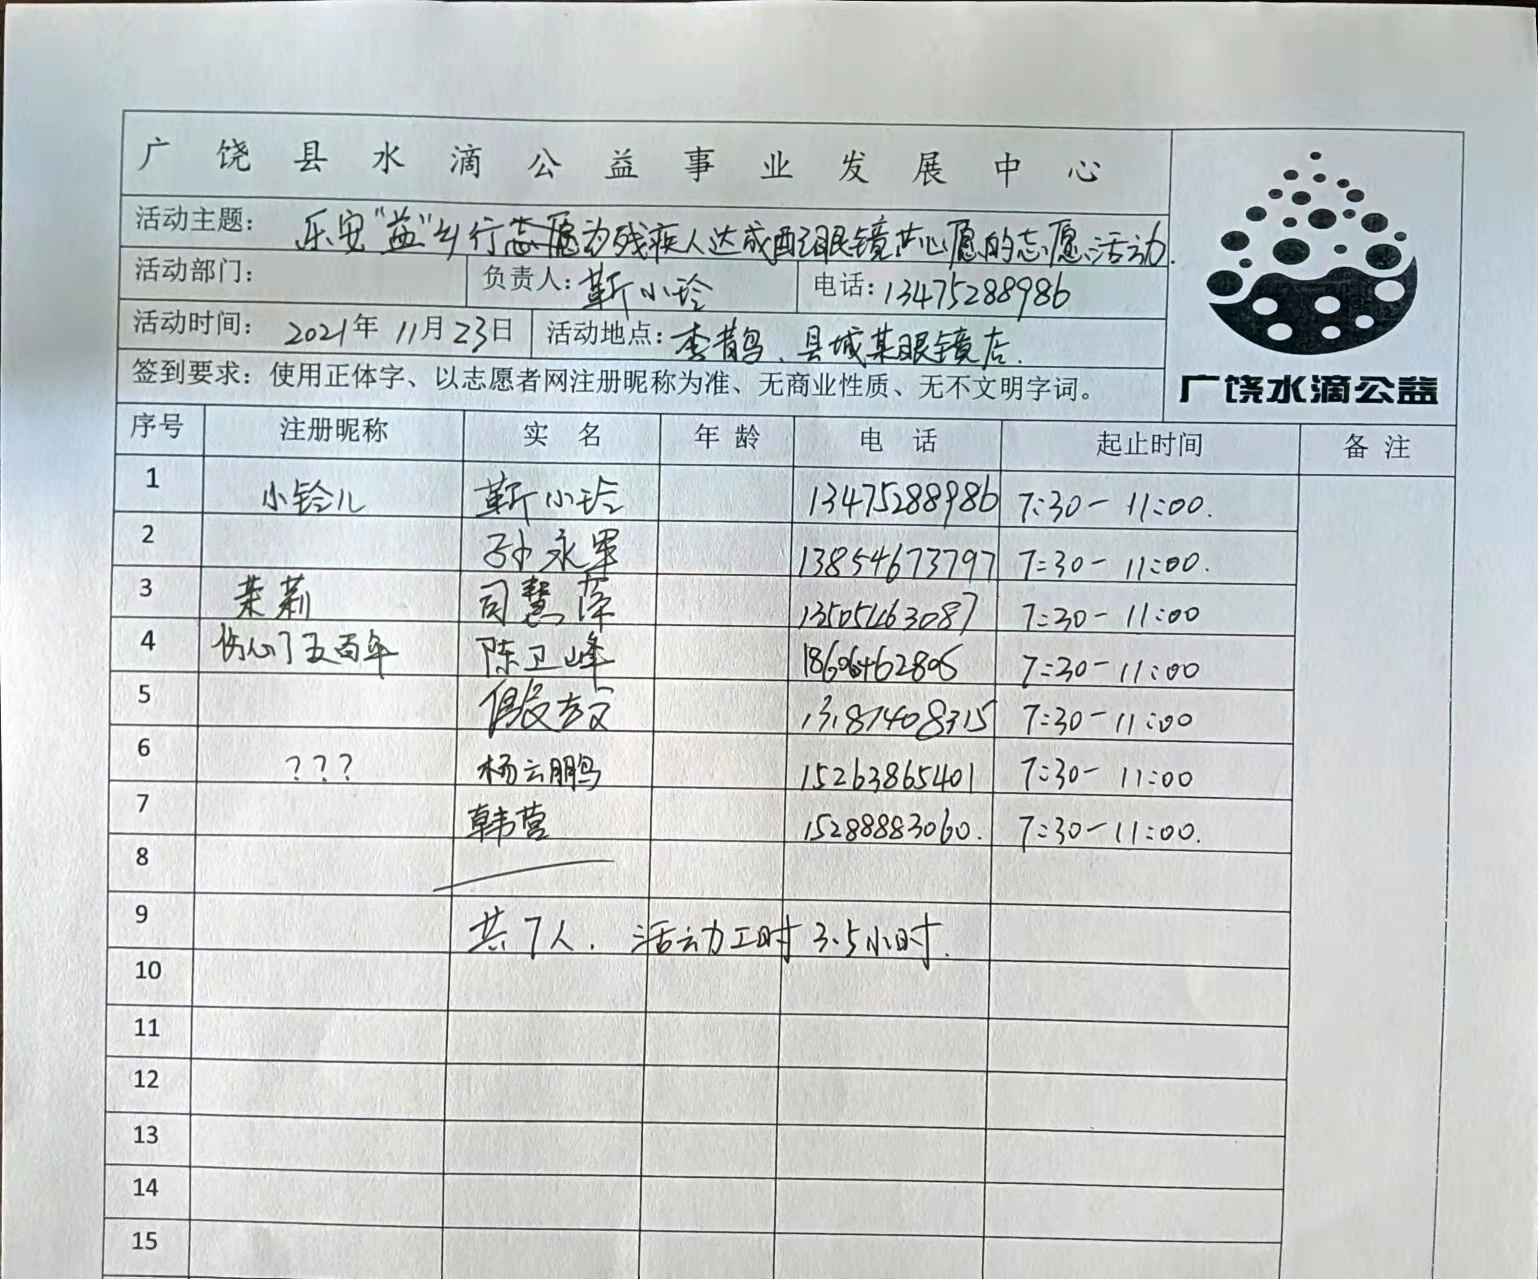 广饶县水滴公益事业发展中心
活动主题: 乐安"益"乡行志愿为残疾人达成配眼镜心愿的志愿活动.
活动部门: 负责人: 靳小玲 电话: 13475288986
活动时间: 2021年 11月23日 活动地点: 李鹊、县城某眼镜店.
签到要求: 使用正体字、以志愿者网注册昵称为准、无商业性质、无不文明字词。
广饶水滴公益
序号 注册昵称 实名 年龄 电话 起止时间 备注
1 小铃儿 靳小玲 13475288986 7:30-11:00.
2 孙永军 13854673797 7:30-11:00.
3 茉莉 司慧萍 13505463087 7:30-11:00
4 伤心了五百年 陈卫峰 7:30-11:00
5 13181408315 7:30-11:00
6 ??? 杨云鹏 15263865401 7:30-11:00
7 韩营 15288883060. 7:30-11:00.
8
9 共7人. 活动工时3.5小时.
10
11
12
13
14
15